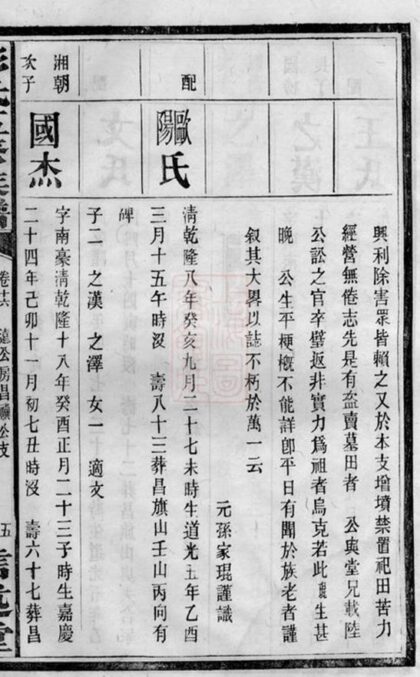 興利除害眾皆賴之又於本支增墳禁置祀田苦力
經營無倦志先是有盜賣墓田者 公與堂兄載陸
公訟之官卒璧返非實力爲祖者烏克若此 生甚
晚 公生平梗槪不能詳卽平日有聞於族老者謹
叙其大畧以誌不朽於萬一云
元孫家琨謹識
配
歐陽氏
清乾隆八年癸亥九月二十七未時生道光五年乙酉
三月十五午時沒 壽八十三葬昌旗山壬山丙向有
碑
子二 之漢 之澤 女一 適文
湘朝
次子
國杰
字南豪清乾隆十八年癸酉正月二十三子時生嘉慶
二十四年己卯十一月初七丑時沒 壽六十七葬昌
卷十六
五